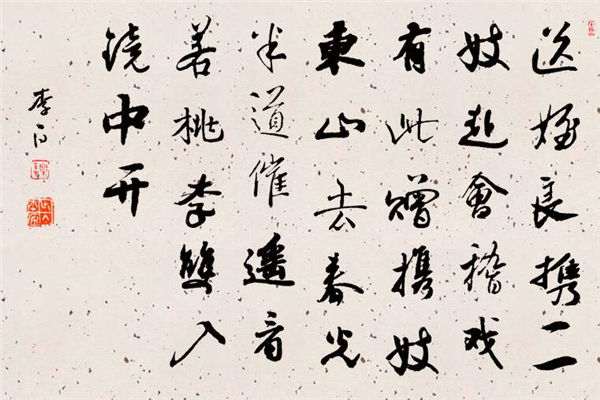 送姪良携二
妓赴會稽戏
有此贈携妓
東山去春光
半道催遥看
若桃李雙入
镜中开
李白